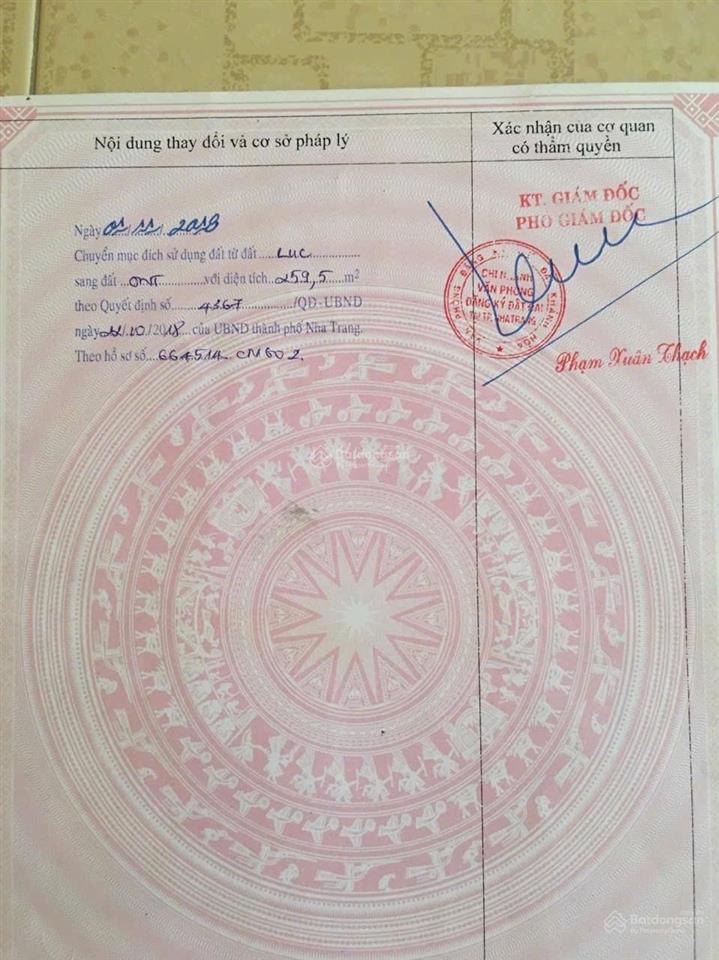 Nội dung thay đổi và cơ sở pháp lý
Xác nhận của cơ quan
có thẩm quyền
KT. GIÁM ĐỐC
PHÓ GIÁM ĐỐC
Ngày 01/11/2018
Chuyển mục đích sử dụng đất từ đất...LUC
sang đất...ONT...với diện tích...259,5...m²
theo Quyết định số...4367.../QĐ-UBND
ngày /10/2018...của UBND thành phố Nha Trang.
Theo hồ sơ số...664514.CN602.
CHI NHÁNH
VĂN PHÒNG
ĐĂNG KÝ ĐẤT ĐAI
TẠI TP. NHA TRANG
KHÁNH HÒA
Phạm Xuân Thạch
Batdongsan
Batdongsan
by PropertyGuru